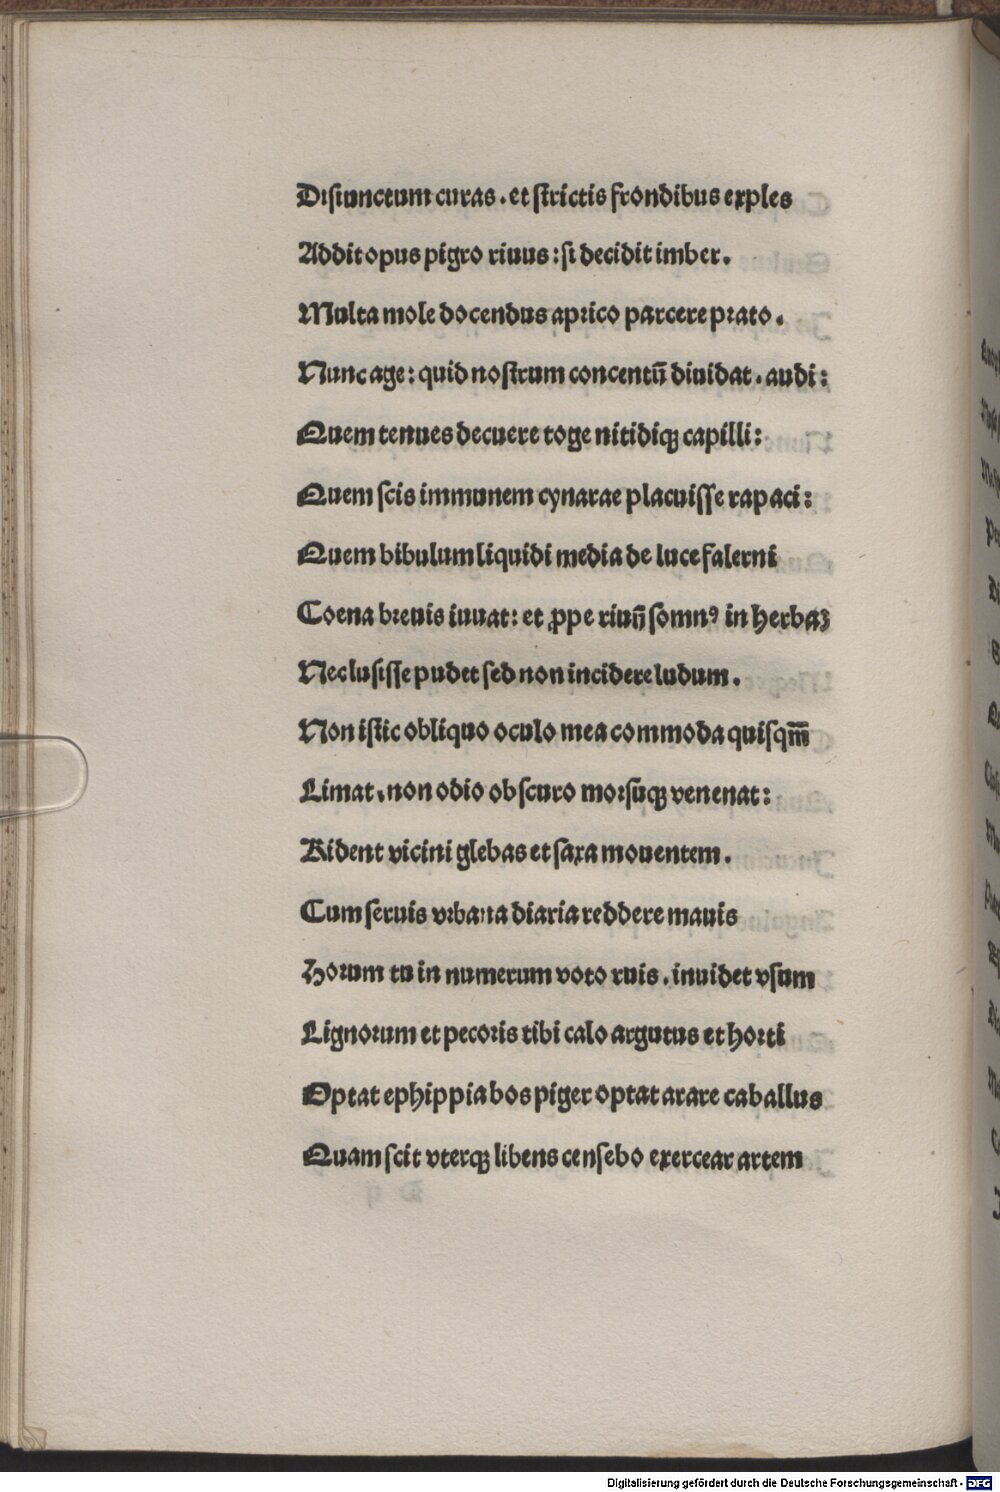 Disiunctum curas. et strictis frondibus exples
Addit opus pigro riuus: si decidit imber.
Multa mole docendus aprico parcere prato.
Nunc age: quid nostrum concentū diuidat. audi:
Quem tenues decuere toge nitidiqꝫ capilli:
Quem scis immunem cynarae placuisse rapaci:
Quem bibulum liquidi media de luce falerni
Coena breuis iuuat: et ꝓpe riuū somnꝰ in herbaꝫ
Nec lusisse pudet sed non incidere ludum.
Non istic obliquo oculo mea commoda quisqm̄
Limat. non odio obscuro morsuqꝫ venenat:
Rident vicini glebas et saxa mouentem.
Cum seruis vrbana diaria reddere mauis
Horum tu in numerum voto ruis. inuidet vsum
Lignorum et pecoris tibi calo argutus et horti
Optat ephippia bos piger optat arare caballus
Quam scit vterqꝫ libens censebo exercear artem
Digitalisierung gefördert durch die Deutsche Forschungsgemeinschaft - DFG